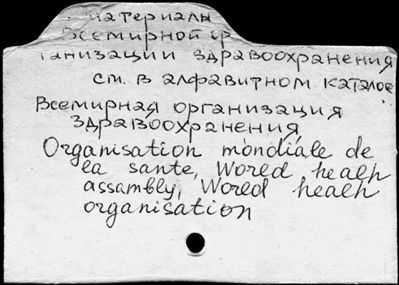 материалы
Всемирной ор
ганизации здравоохранения
см. в алфавитном каталоге
Всемирная организация
здравоохранения,
Organisation mondiale de
la sante, World healh
assambly, World healh
organisation